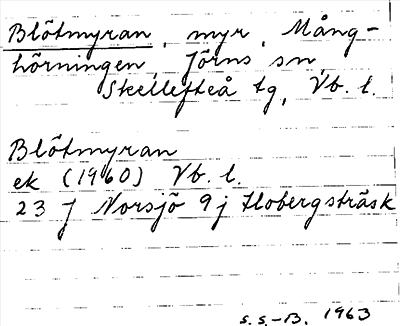 Blötmyran, myr, Mång-
hörningen, Jörns sn,
Skellefteå tg, Vb. l.
Blötmyran
ek (1960) Vb. l.
23 J Norsjö 9j Flobergsträsk
S.S.-B. 1963